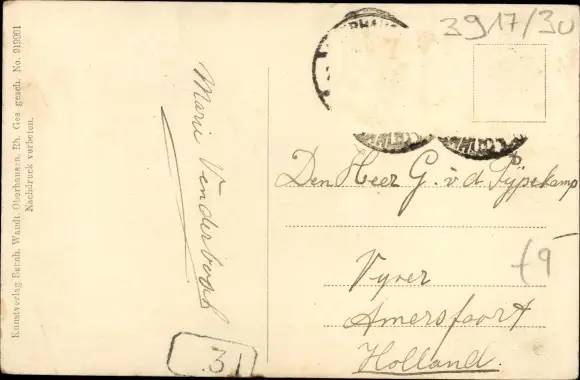 3917/30
Kunstverlag Bernh. Wandt, Oberhausen, Rh. Ges. gesch. No. 919991
Nachdruck verboten.
Marie Venderbosch
Den Heer G. v d Pijpekamp
Vyver
Amersfoort
Holland.
f9
31